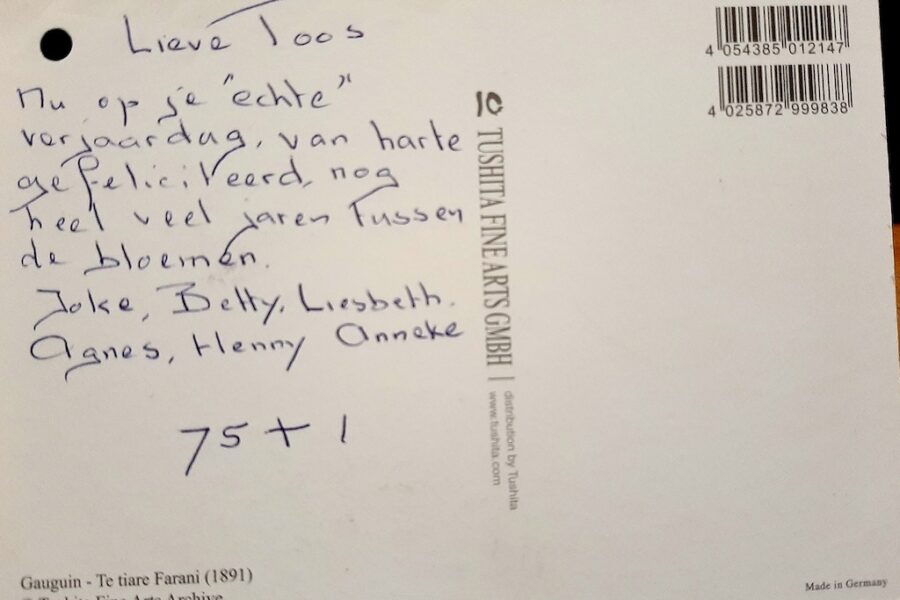 Lieve Toos
Nu op je "echte"
verjaardag, van harte
gefeliciteerd, nog
heel veel jaren tussen
de bloemen.
Joke, Betty, Liesbeth.
Agnes, Henny Anneke
75 + 1
4 054385 012147
4 025872 999838
TUSHITA FINE ARTS GMBH |
distribution by Tushita
www.tushita.com
Gauguin - Te tiare Farani (1891)
© Tushita Fine Arts Archive
Made in Germany